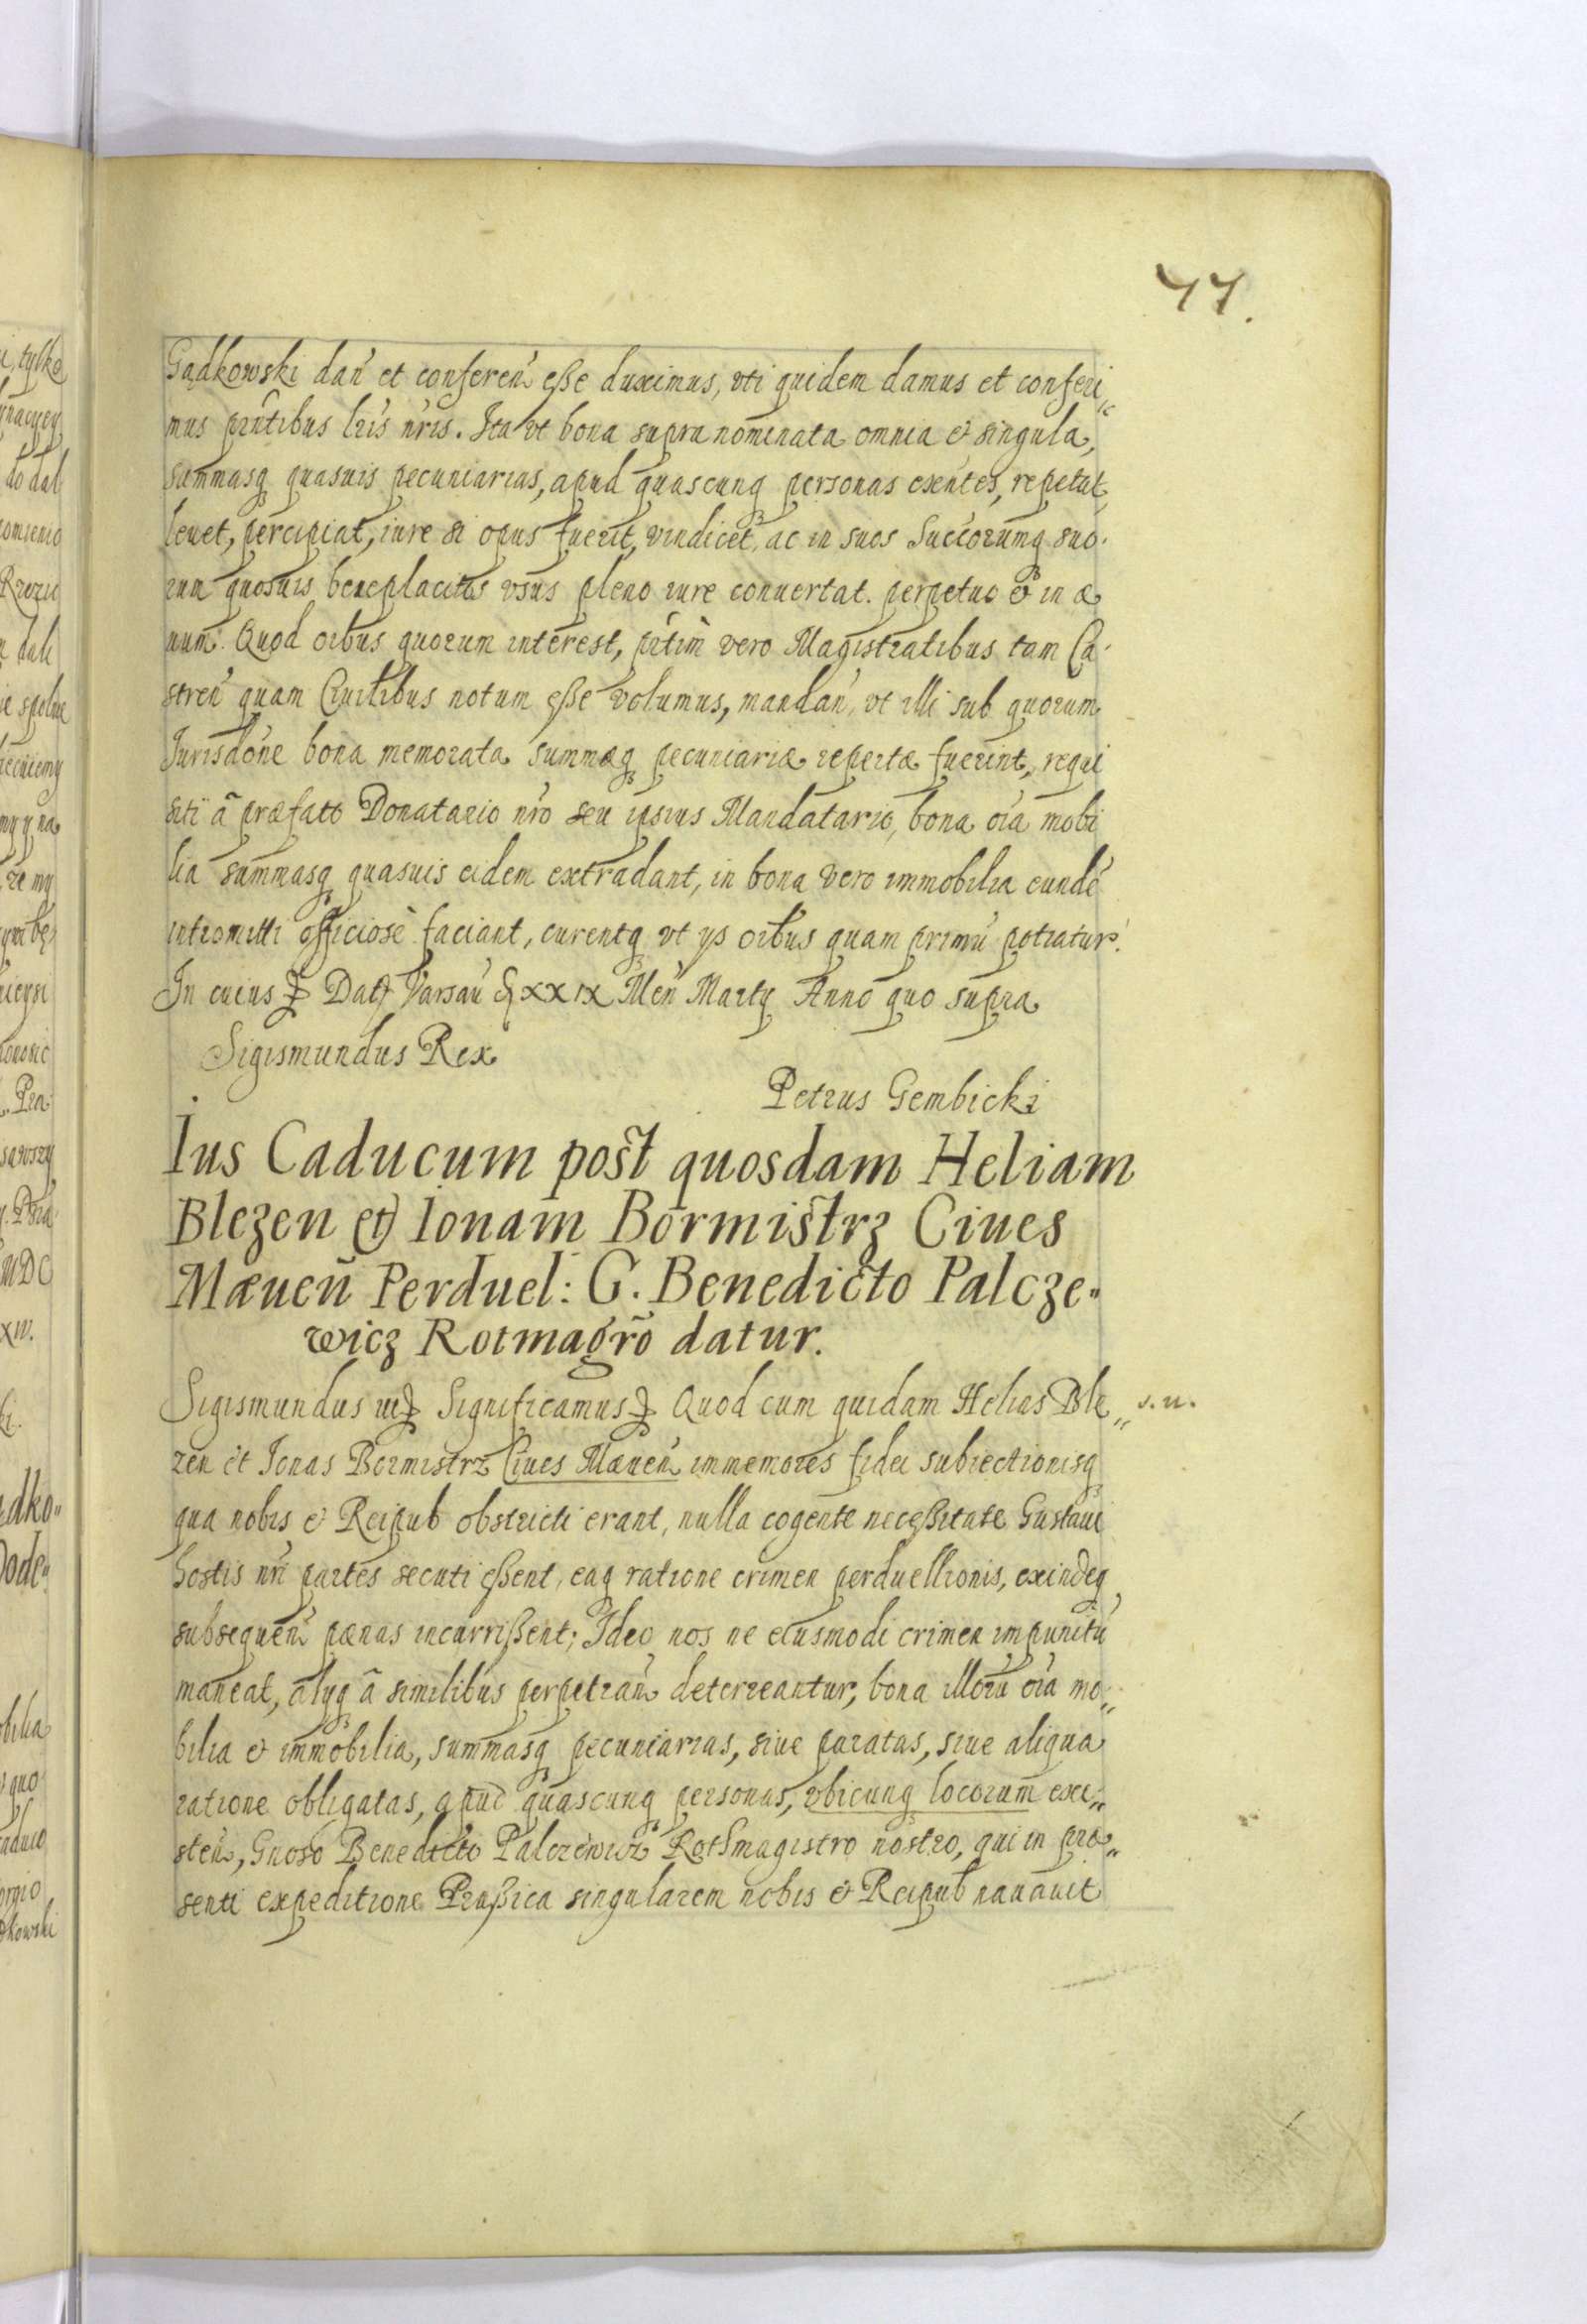 77.
Gądkowski dan̄ et conferen̄ eße duximus, vti quidem damus et conferi„
mus pn̄tibus lr̄is nr̄is. Ita vt bona supra nominata omnia & singula,
summasq quasuis pecuniarias, apud quascunq personas exn̄tes, repetat,
leuet, percipiat, iure si opus fuerit, vindicet, ac in suos Succorumq suo-
rum quosuis beneplacitos vsus pleno iure conuertat. perpetuo & in æ
uum. Quod oībus quorum interest, pr̄tim vero Magistratibus tam Ca-
stren̄ quam Ciuilibus notum eße volumus, mandan̄, vt illi sub quorum
Jurisdōne bona memorata summæq pecuniariæ repertæ fuerint, requi
siti â præfato Donatario nr̄o seu ipsius Mandatario, bona oīa mobi
lia summasq quasuis eidem extradant, in bona vero immobilia eundē
intromitti officiosè faciant, curentq vt ijs oībus quam primū potiatur.
In cuius Dat Varsau̅ XXIX Men̄ Martij Anno quo supra
Sigismundus Rex
Petrus Gembicki
Ius Caducum post quosdam Heliam
Blezen et Ionam Bormistrz Ciues
Mæuen̄ Perduel: G. Benedicto Palcze„
wicz Rotmagr̄o datur.
Sigismundus III Significamus Quod cum quidam Helias Ble„ s. n.
zen et Jonas Bormistrz Ciues Mæuen̄ immemores fidei subiectionisq
qua nobis & Reipub obstricti erant, nulla cogente neceßitate Gustaui
hostis nr̄i partes secuti eßent, eaq ratione crimen perduellionis, exindeq
subsequen̄ pœnas incurrißent; Ideo nos ne eiusmodi crimen impunitū
maneat, alijq â similibus perpetran̄ deterreantur, bona illorū oīa mo„
bilia & immobilia, summasq pecuniarias, siue paratas, siue aliqua
ratione obligatas, apud quascunq personas, vbicunq locorum exi„
sten̄, Gnoso Benedicto Palczewicz Rothmagistro nostro, qui in præ„
senti expeditione Prußica singularem nobis & Reipub nauauit